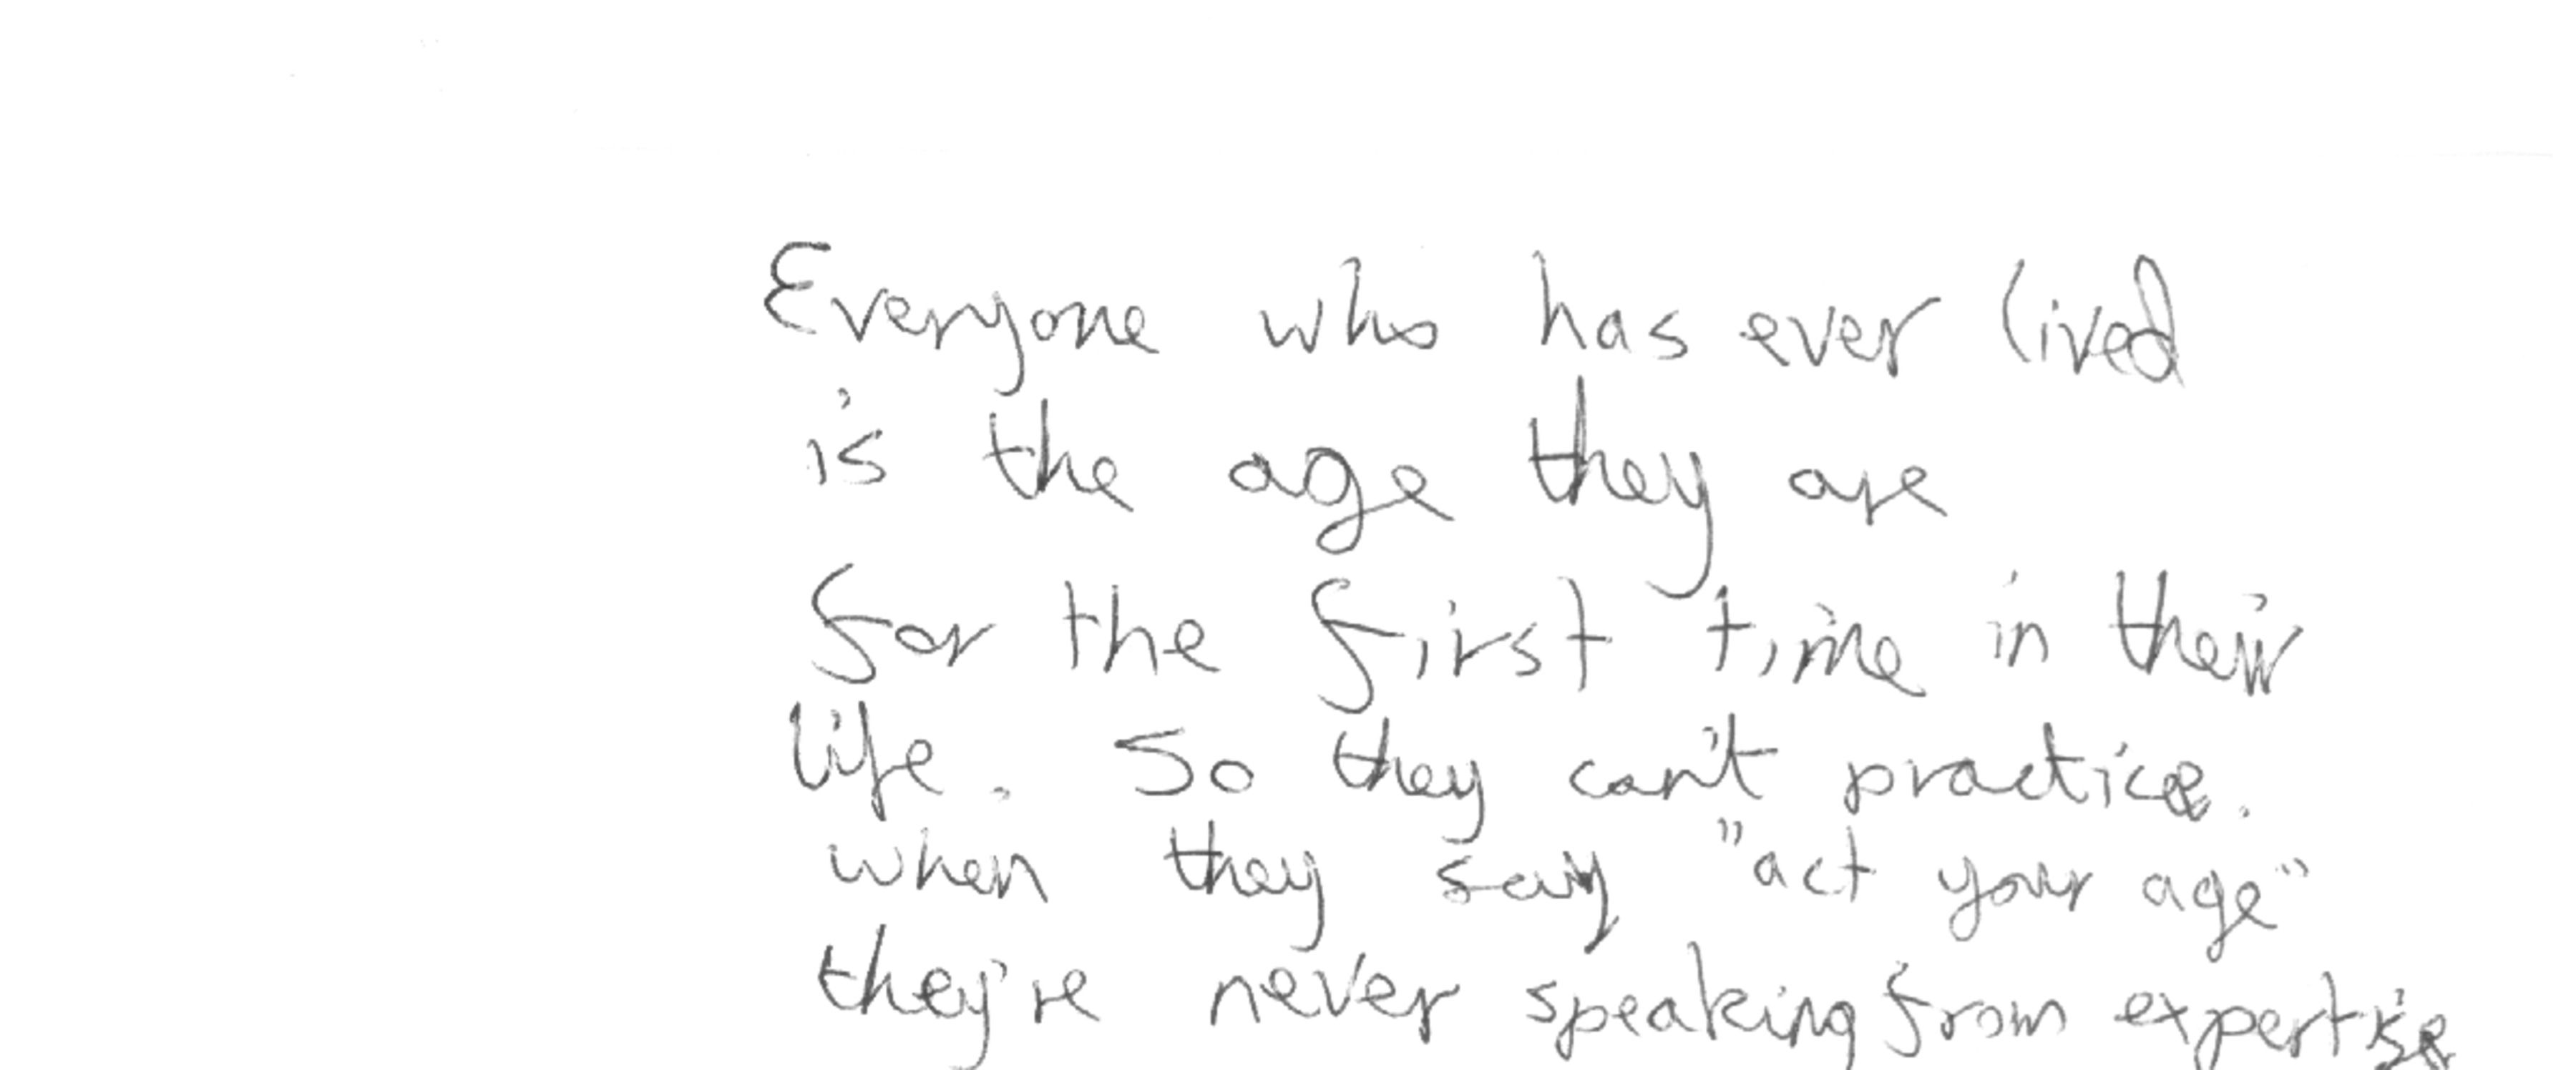 Everyone who has ever lived
is the age they are
for the first time in their
life. So they can't practice.
when they say "act your age"
they're never speaking from expertise